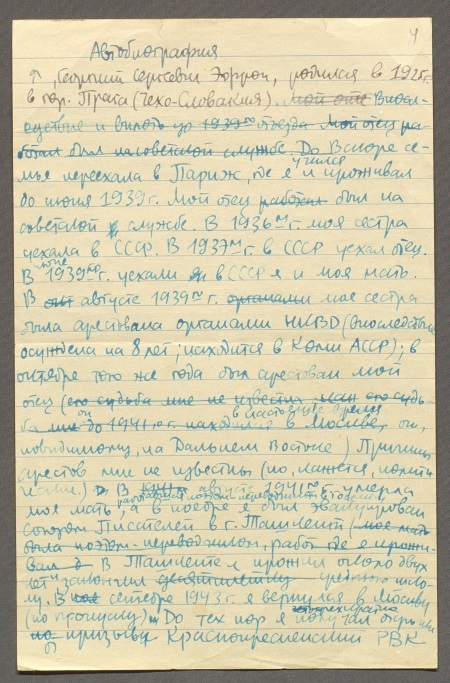 4
Автобиография
Я, Георгий Сергеевич Эфрон, родился в 1925 г.
в гор. Прага (Чехо-Словакия). Мой отец Впосл-
едствие и вплоть до 1939 го отъезда Мой отец ра-
ботал был на советской службе До Вскоре се-
мья переехала в Париж, где я учился и проживал
до июня 1939 г. Мой отец работал был на
советской службе. В 1936 м г. моя сестра
уехала в СССР. В 1937 м г. в СССР уехал отец.
В июне 1939 го г. уехали в СССР я и моя мать.
В августе 1939 го г. органами моя сестра
была арестована органами НКВД (впоследствие
осуждена на 8 лет; находится в Коми АССР); в
октябре того же года был арестован мой
отец (его судьба мне не известна; его судь-
ба мне до 1941 го г. он находился в Москве, в настоящее время он,
повидимому, на Дальнем Востоке) Причины
арестов мне не известны (но, кажется, полити-
ческие.) В августе 1941 го г. умерла
моя мать, а в ноябре я был эвакуирован
союзом Писателей в г. Ташкент (моя мать
была поэтом-переводчиком, где я прожи-
вал В Ташкенте я прожил около двух
лет и закончил десятилетку среднюю шко-
лу. В сентябре 1943 г. я вернулся в Москву
(по пропуску) До тех пор я получал отсрочки
по призыву Краснопресненский РВК